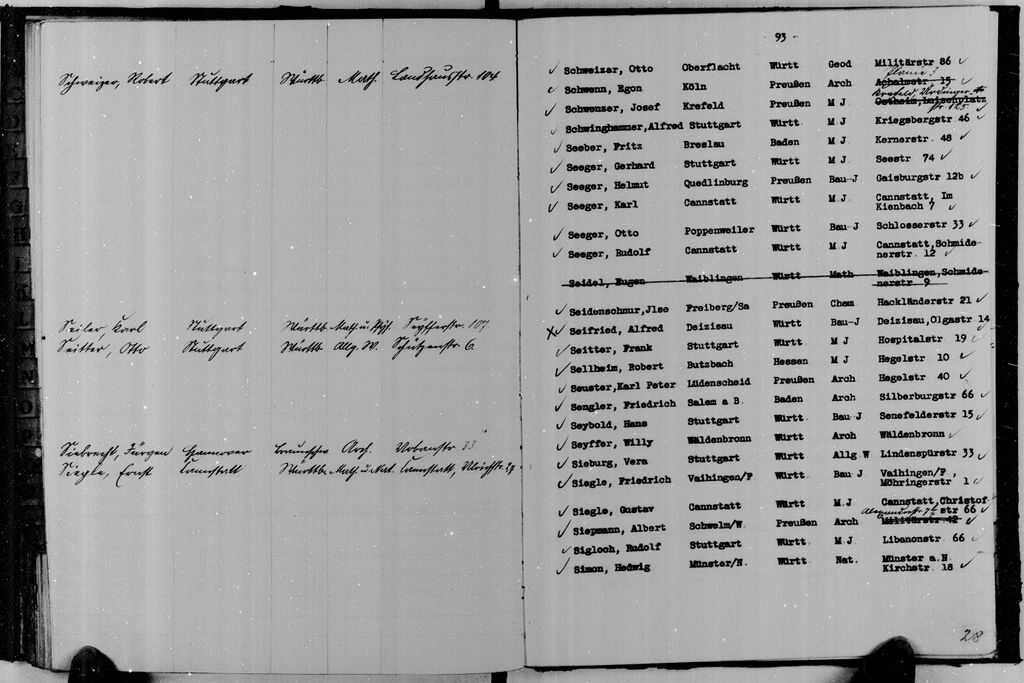 Schweizer, Robert Stuttgart Württb. Math. Landhausstr. 104
Seiler, Karl Stuttgart Württb. Math. u. Phys. 107
Seitter, Otto Stuttgart Württb. Allg. W. Schützenstr. 6.
Siebrecht, Jürgen Hannover Braunschw. Arch. Urbanstr. 33
Siegle, Ernst Cannstatt Württb. Math. u. Nat. Cannstatt, Ulrichstr.
93 -
✓ Schweizer, Otto Oberflacht Württ Geod Militärstr 86 ✓
✓ Schwenn, Egon Köln Preußen Arch Achalmstr 15 ✓
Krefeld, Ürdinger-
✓ Schwenzer, Josef Krefeld Preußen M J Ostheim, Luisenplatz
str. 125 ✓
✓ Schwinghammer,Alfred Stuttgart Württ. M J Kriegsbergstr 46 ✓
✓ Seeber, Fritz Breslau Baden M J Kernerstr. 48 ✓
✓ Seeger, Gerhard Stuttgart Württ M J. Seestr 74 ✓
✓ Seeger, Helmut Quedlinburg Preußen Bau-J Gaisburgstr 12b ✓
✓ Seeger, Karl Cannstatt Württ M.J Cannstatt, Im
Kienbach 7 ✓
✓ Seeger, Otto Poppenweiler Württ Bau-J Schlosserstr 33 ✓
✓ Seeger, Rudolf Cannstatt Württ M J Cannstatt,Schmide-
nerstr. 12 ✓
Seidel, Eugen Waiblingen Württ Math Waiblingen,Schmide-
nerstr 9
✓ Seidenschnur,Jlse Freiberg/Sa Preußen Chem Hackländerstr 21 ✓
X✓ Seifried, Alfred Deizisau Württ Bau-J Deizisau,Olgastr 14
✓ Seitter, Frank Stuttgart Württ M J Hospitalstr 19 ✓
✓ Sellheim, Robert Butzbach Hessen M J Hegelstr 10 ✓
✓ Seuster,Karl Peter Lüdenscheid Preußen Arch. Hegelstr 40 ✓
✓ Sengler, Friedrich Salem a B. Baden Arch Silberburgstr 66 ✓
✓ Seybold, Hans Stuttgart Württ. Bau J Senefelderstr 15 ✓
✓ Seyffer, Willy Wäldenbronn Württ Arch Wäldenbronn ✓
✓ Sieburg, Vera Stuttgart Württ. Allg W Lindenspürstr 33 ✓
✓ Siegle, Friedrich Vaihingen/F Württ. Bau J Vaihingen/F ,
Möhringerstr 1 ✓
✓ Siegle, Gustav Cannstatt Württ M.J Cannstatt,Christof-
str 66 ✓
✓ Siepmann, Albert Schwelm/W. Preußen Arch Militärstr 42 ✓
✓ Sigloch, Rudolf Stuttgart Württ. M.J. Libanonstr 66 ✓
✓ Simon, Hedwig Münster/N. Württ. Nat. Münster a.N.
Kirchstr 18 ✓
28